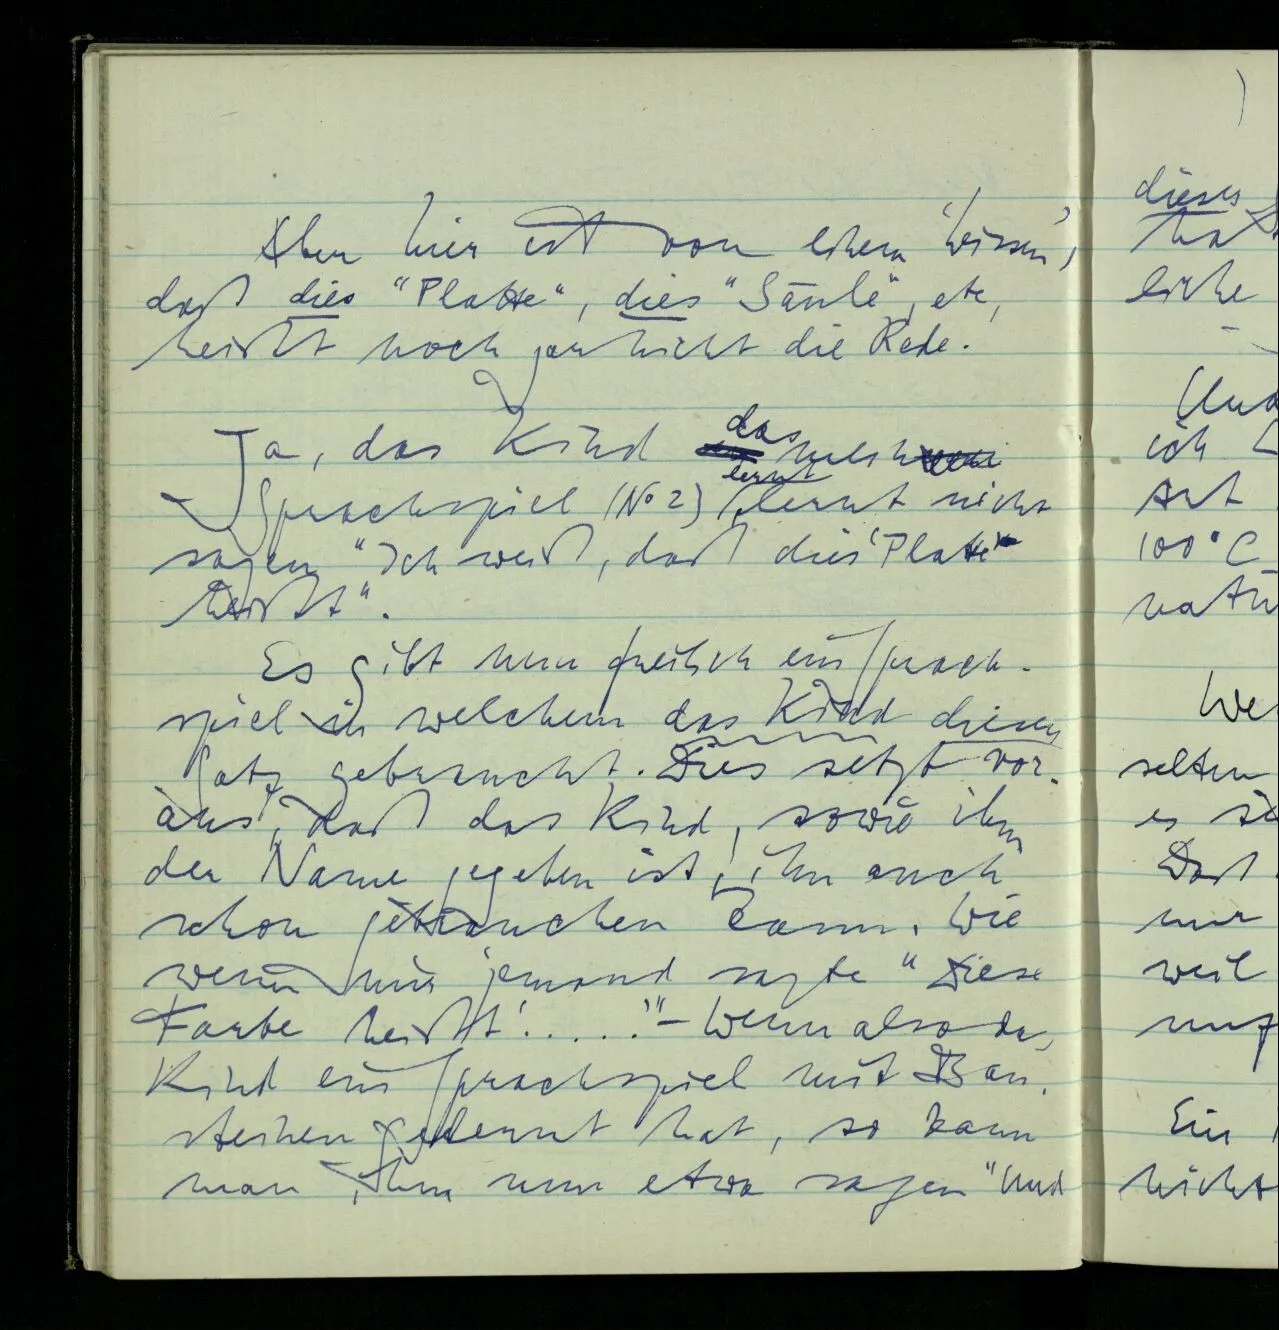 Aber hier ist von einem ‘Wissen’,
daß dies “Platte”, dies “Säule”, etc,
heißt noch gar nicht die Rede.
Ja, das Kind das mein
Sprachspiel (No 2) lernt lernt nicht
sagen “Ich weiß, daß dies ‘Platte’
heißt”.
Es gibt nun freilich ein Sprach-
spiel in welchem das Kind diesen
Satz gebraucht. Dies setzt vor-
aus, daß das Kind, sowie ihm
der Name gegeben ist, ihn auch
schon gebrauchen kann. Wie
wenn mir jemand sagte “Diese
Farbe heißt ‘.....’” – Wenn also das
Kind ein Sprachspiel mit Bau-
steinen gelernt hat, so kann
man ihm nun etwa sagen “Und
)
dieses
hat
liche
Und
ich
Art
100°C
natü
We
selten
es
Daß
nur
weil
Ein
nicht